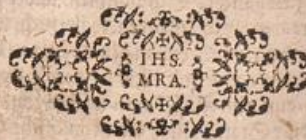 IHS.
MRA.